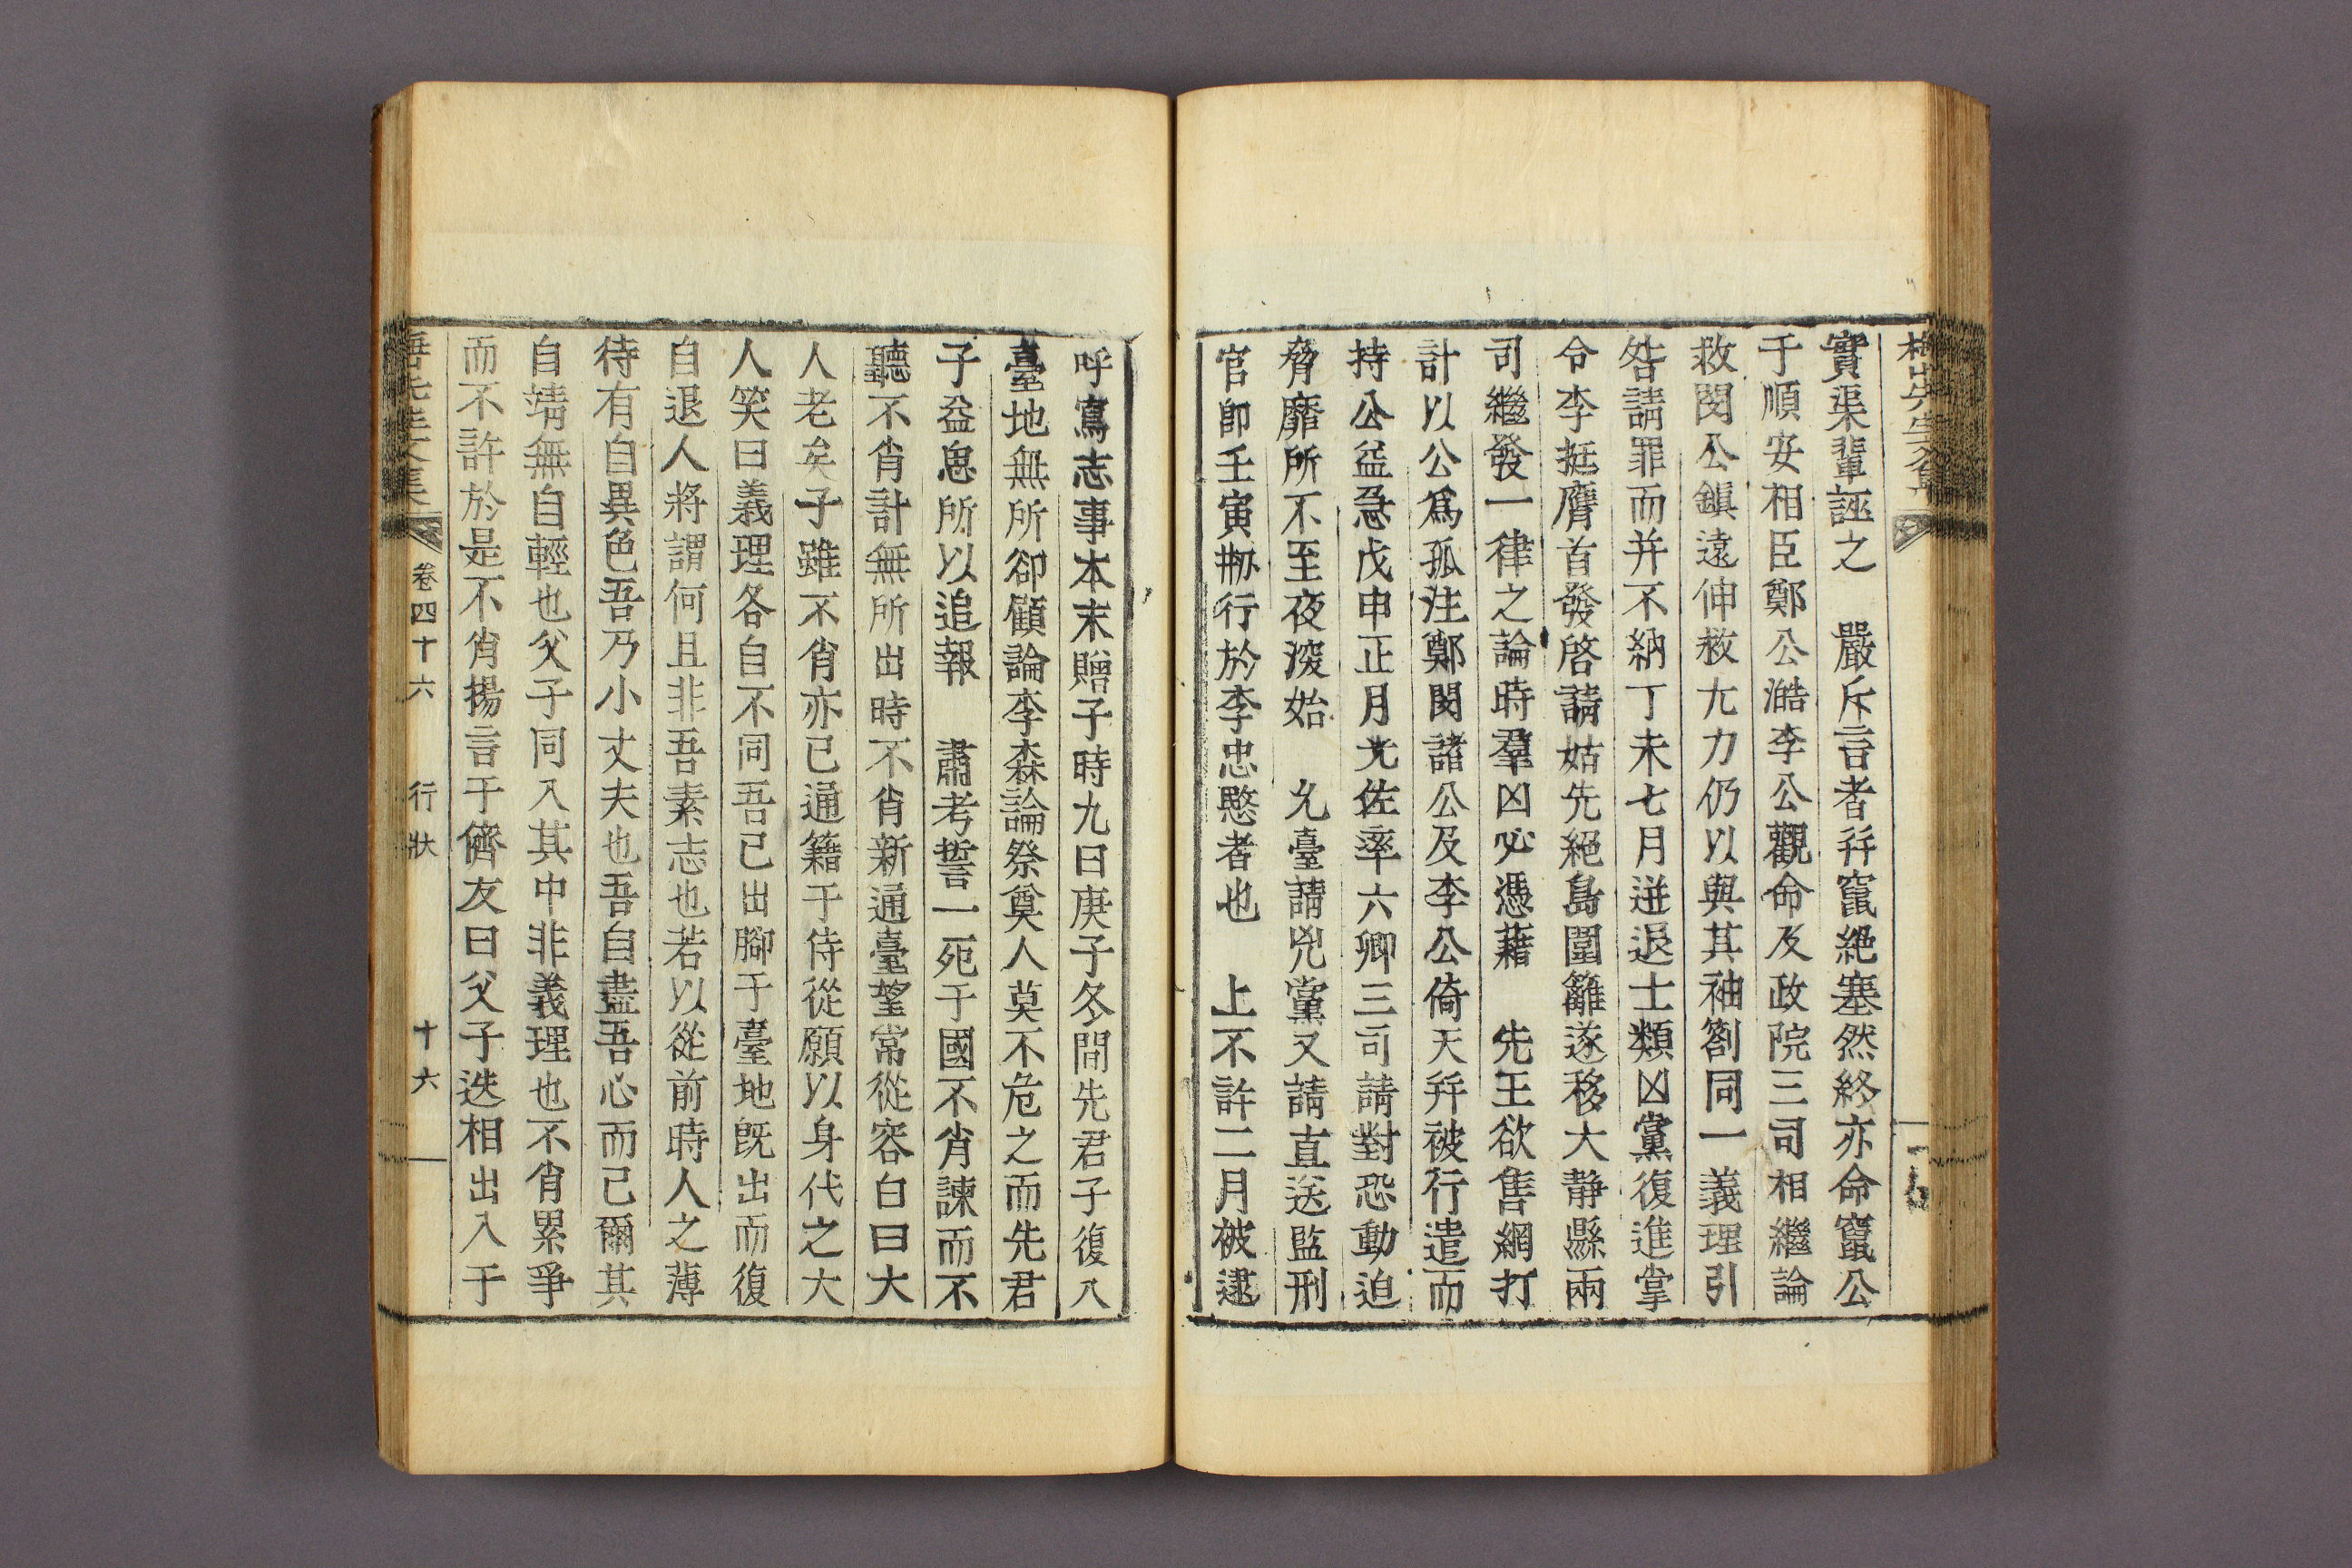 實渠輩誣之　嚴斥言者幷竄絶塞然終亦命竄公
于順安相臣鄭公澔李公觀命及政院三司相繼論
救閔公鎭遠伸救尤力仍以與其袖劄同一義理引
咎請罪而并不納丁未七月迸退士類凶黨復進掌
令李挺膺首發啓請姑先絶島圍籬遂移大静縣兩
司繼發一律之論時羣凶必憑藉　先王欲售網打
計以公爲孤注鄭閔諸公及李公倚天幷被行遣而
持公益急戊申正月光佐率六卿三司請對恐動迫
脅靡所不至夜深始　允臺請兇黨又請直送監刑
官卽壬寅刱行於李忠愍者也　上不許二月被逮
呼寫志事本末贈子時九日庚子冬間先君子復入
臺地無所卻顧論李森論祭奠人莫不危之而先君
子益思所以追報　肅考誓一死于國不肖諫而不
聽不肖計無所出時不肖新通臺望常從容白曰大
人老矣子雖不肖亦已通籍于侍從願以身代之大
人笑曰義理各自不同吾已出腳于臺地旣出而復
自退人將謂何且非吾素志也若以從前時人之薄
待有自異色吾乃小丈夫也吾自盡吾心而已爾其
自靖無自輕也父子同入其中非義理也不肖累爭
而不許於是不肖揚言于儕友曰父子迭相出入于
先生文集　卷四十六　行狀　十六